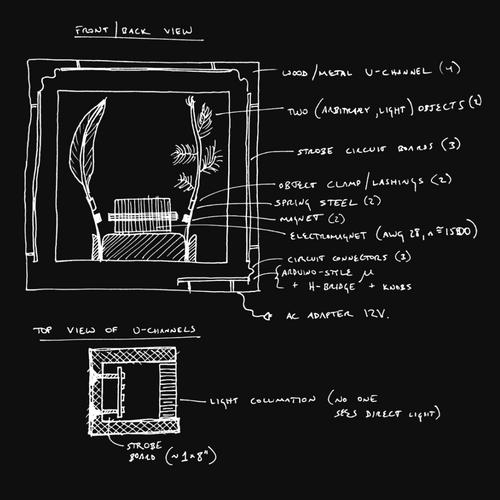 FRONT/BACK VIEW
WOOD/METAL U-CHANNEL (4)
TWO (ARBITRARY, LIGHT) OBJECTS (2)
STROBE CIRCUIT BOARDS (3)
OBJECT CLAMP/LASHINGS (2)
SPRING STEEL (2)
MAGNET (2)
ELECTROMAGNET (AWG 28, n≅1500)
CIRCUIT CONNECTORS (3)
ARDUINO-STYLE μ
+ H-BRIDGE + KNOBS
AC ADAPTER 12V.
TOP VIEW OF U-CHANNELS
LIGHT COLLIMATION (NO ONE
SEES DIRECT LIGHT)
STROBE
BOARD (~1×8")